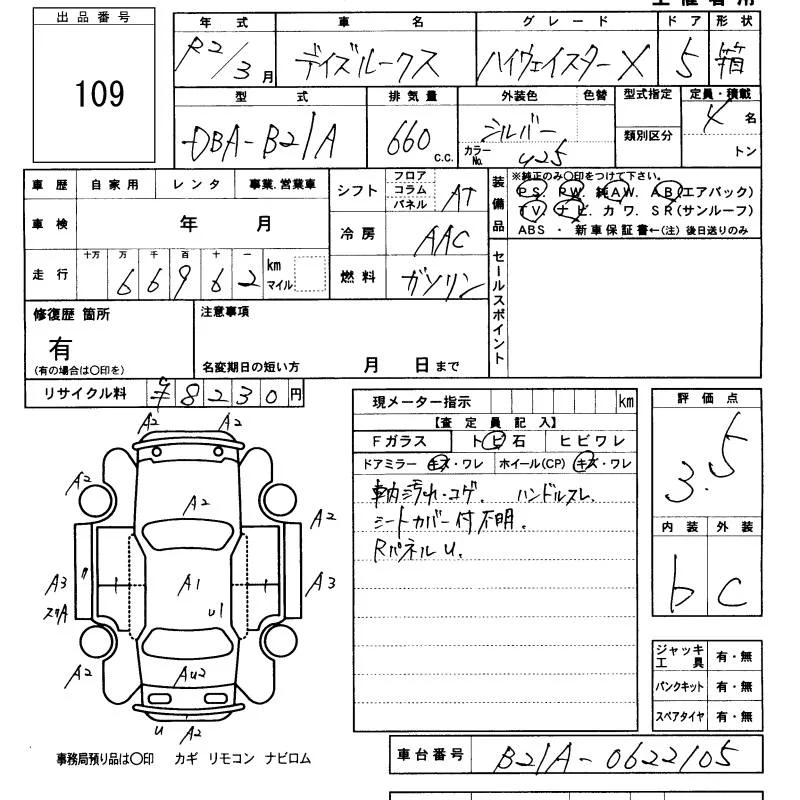 出品番号
109
年式 車名 グレード ドア 形状
R2/3月 デイズルークス ハイウェイスターX 5 箱
型式 排気量 外装色 色替 型式指定 定員・積載
DBA-B21A 660 c.c. シルバー カラーNo. U25 類別区分 4名 トン
車歴 自家用 レンタ 事業.営業車
車検 年 月
走行 十万 万 千 百 十 一 km マイル
66962
シフト フロア コラム パネル AT
冷房 AAC
燃料 ガソリン
装備品
※純正のみ〇印をつけて下さい。
PS. PW. 純AW. AB(エアバック)
TV. ナビ. カワ. SR(サンルーフ)
ABS ・ 新車保証書←(注) 後日送りのみ
セールスポイント
修復歴 箇所
有
(有の場合は〇印を)
注意事項
名変期日の短い方 月 日まで
リサイクル料 8230円
現メーター指示 km
【査定員記入】
Fガラス トビ石 ヒビワレ
ドアミラー キズ・ワレ ホイール(CP) キズ・ワレ
車内汚れ・コゲ. ハンドルスレ.
シートカバー付不明.
Rパネル U.
評価点
3.5
内装 外装
b c
ジャッキ工具 有・無
パンクキット 有・無
スペアタイヤ 有・無
A2 A2
A2 A2 A2
A3 A1 A3
U1
A2 AU2 A2
U A2
事務局預り品は〇印 カギ リモコン ナビロム
車台番号 B21A-0622105